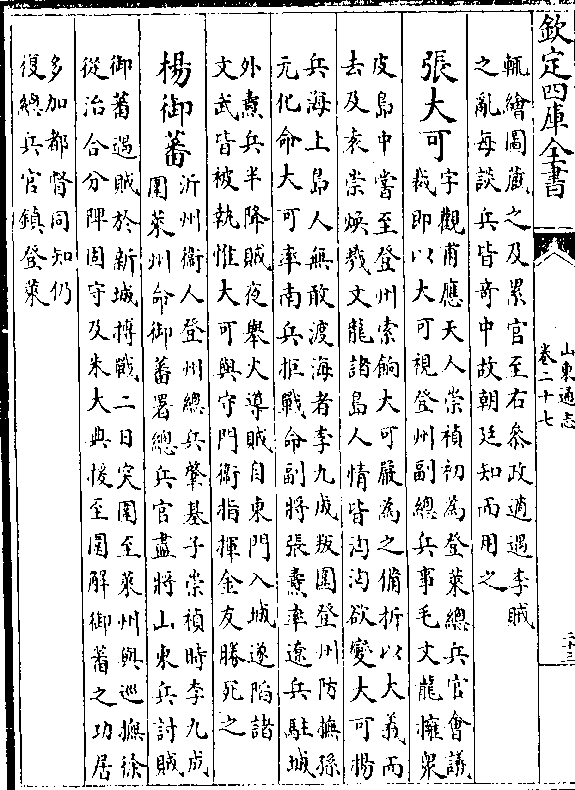 欽定四庫全書
山東通志
卷二十七
輒繪圖藏之及累官至右叅政適遇李賊
之亂每談兵皆竒中故朝廷知而用之
張大可
字觀甫應天人崇禎初為登萊總兵官會議
裁即以大可視登州副總兵事毛文龍擁衆
皮島中嘗至登州索餉大可嚴為之備折以大義而
去及袁崇煥戮文龍諸島人情皆汹汹欲變大可揚
兵海上島人無敢渡海者李九成叛圍登州防撫孫
元化命大可率南兵拒戰命副將張燾率遼兵駐城
外燾兵半降賊夜舉火導賊自東門入城遂陷諸
文武皆被執惟大可與守門衞指揮金友勝死之
楊御蕃
沂州衞人登州總兵肇基子崇禎時李九成
圍萊州命御蕃署總兵官盡將山東兵討賊
御蕃遇賊於新城搏戰二日突圍至萊州與巡撫徐
從治合分陴固守及朱大典援至圍解御蕃之功居
多加都督同知仍
復總兵官鎮登萊